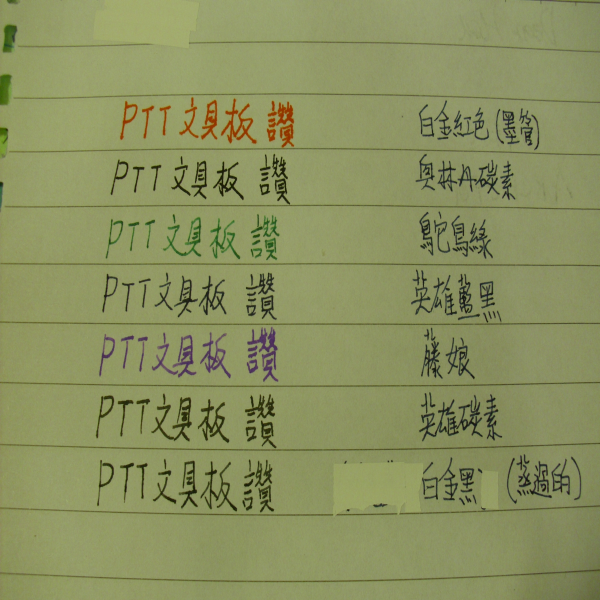 PTT 文具板 讚 白金紅色(墨管)
PTT 文具板 讚 奧林丹碳素
PTT 文具板 讚 鴕鳥綠
PTT 文具板 讚 英雄藍黑
PTT 文具板 讚 藤娘
PTT 文具板 讚 英雄碳素
PTT 文具板 讚 白金黑 (蒸過的)